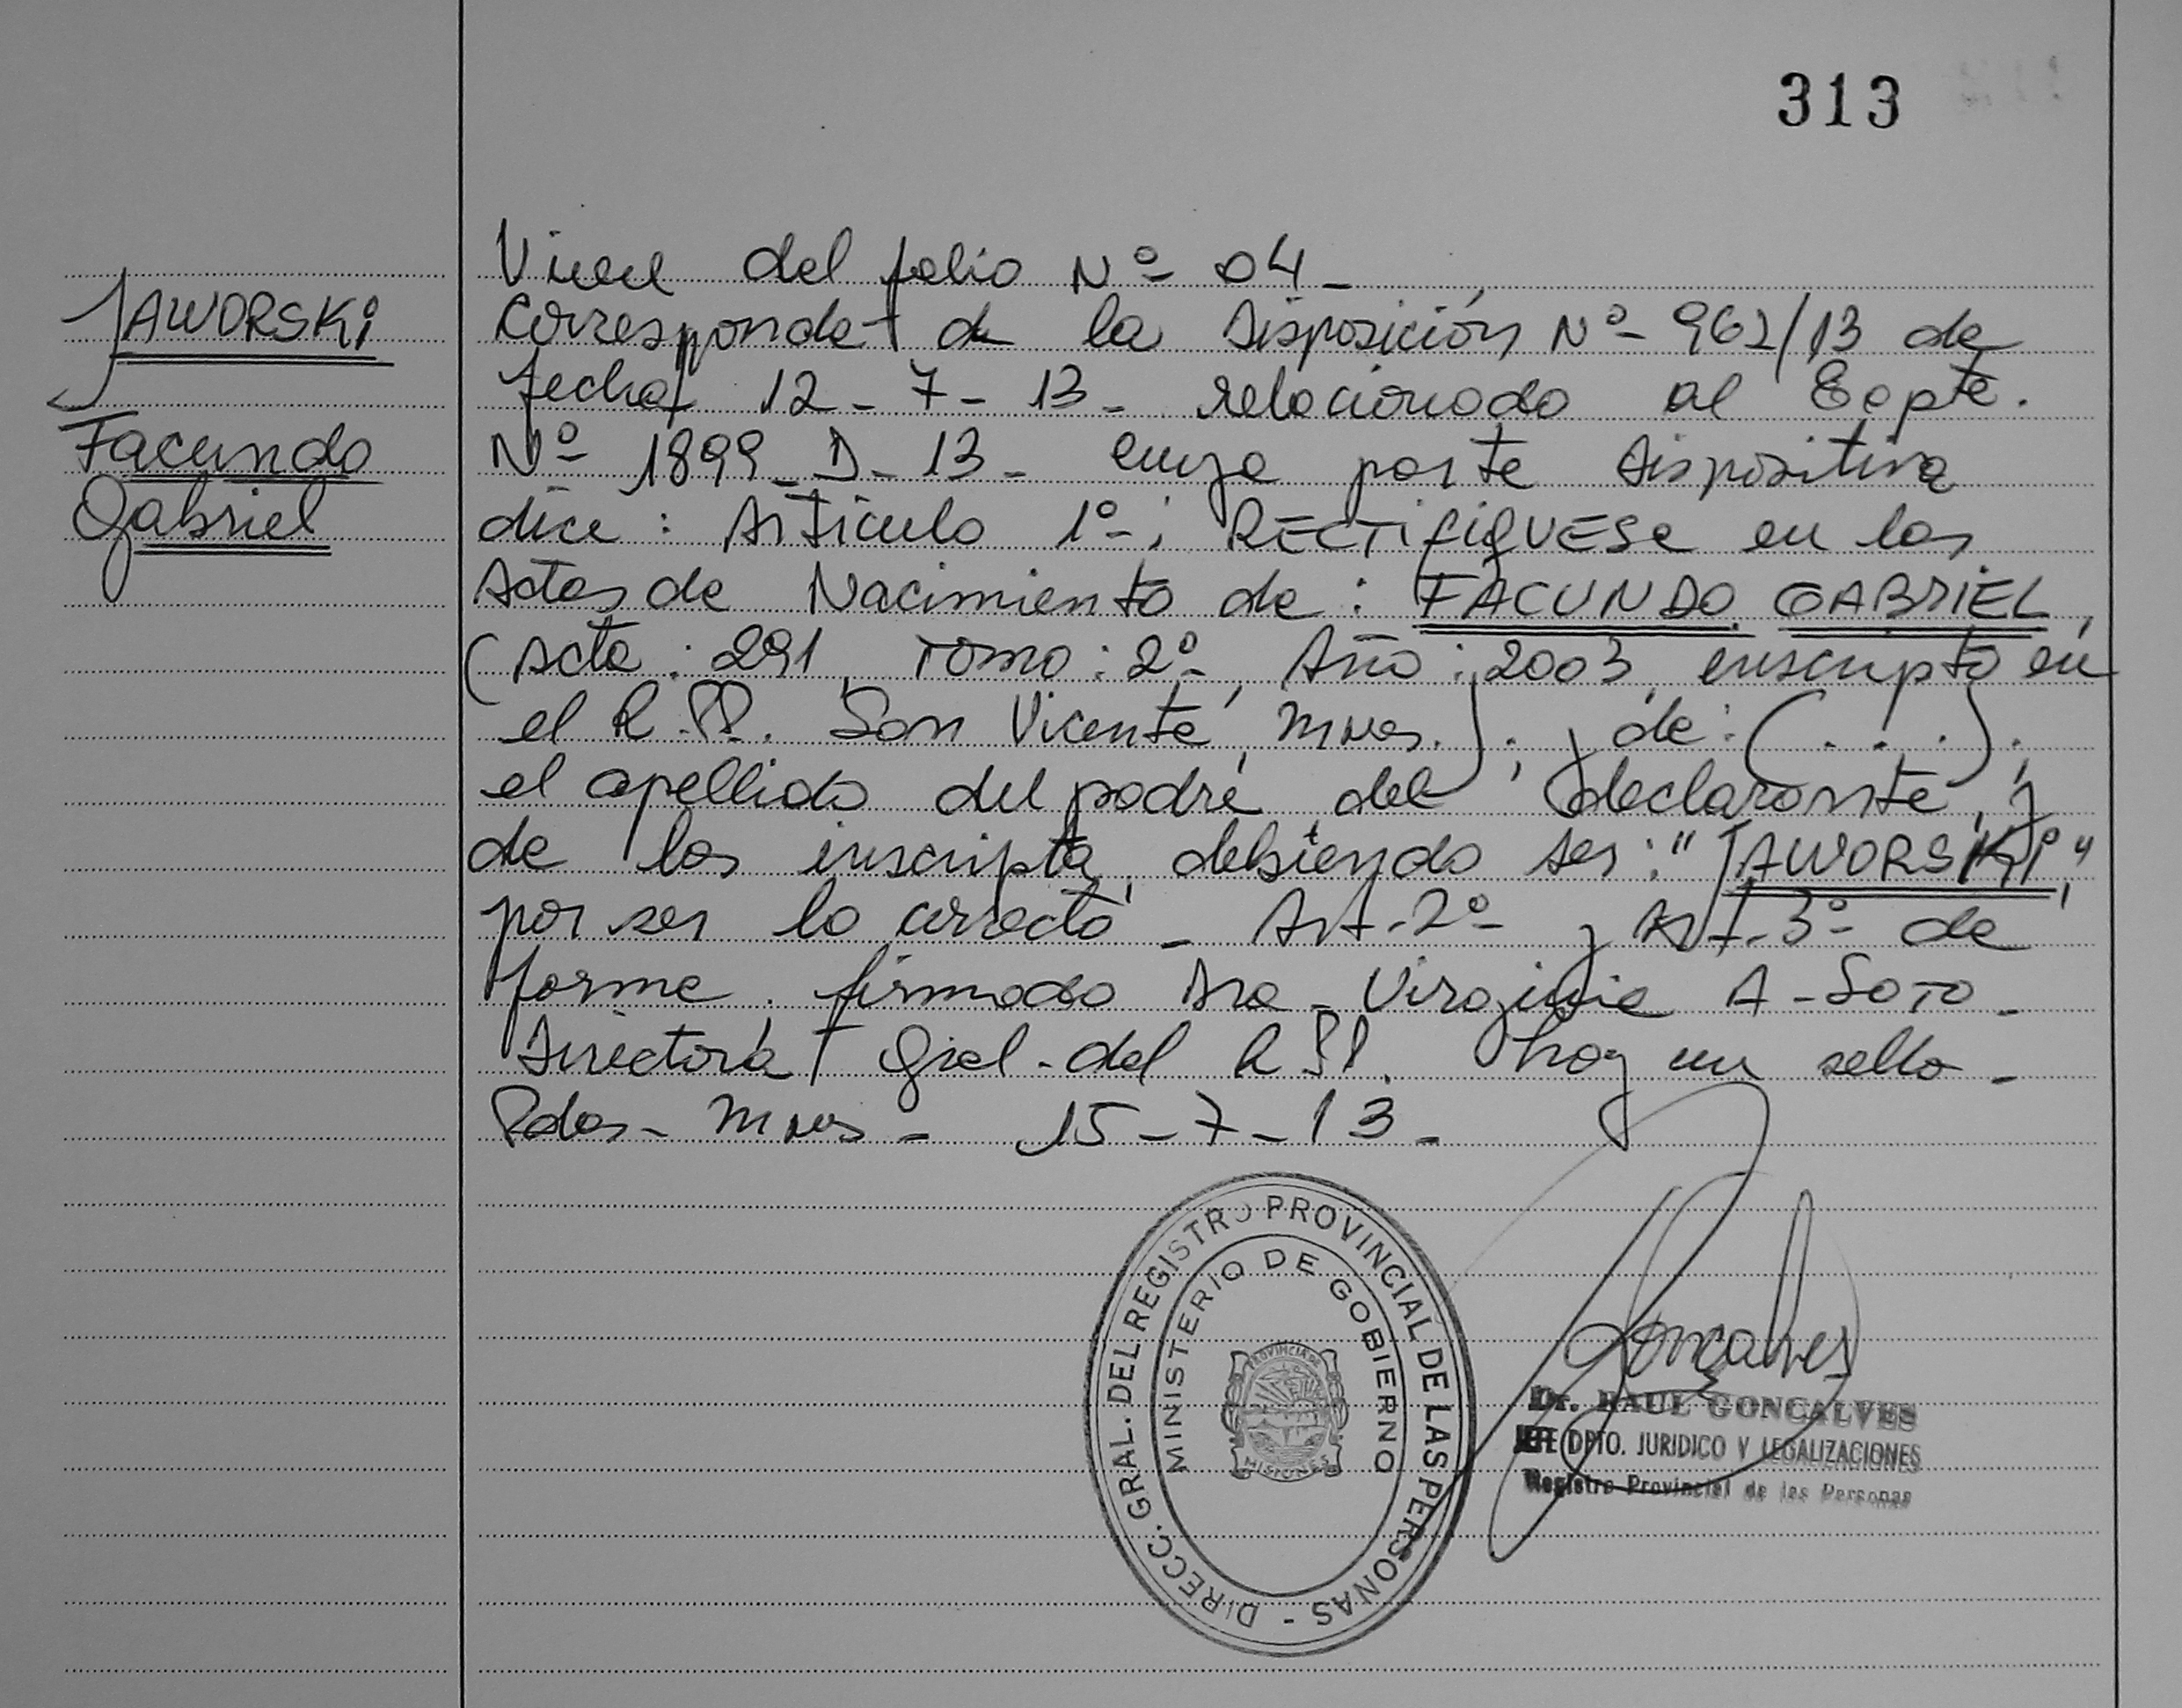 313
JAWORSKi
Facundo
Gabriel
Viene del folio Nº 04 -
Corresponde a la Disposición Nº 962/13 de
fecha 12 - 7 - 13 - relacionado al Expte.
Nº 1899 - D - 13 - cuya parte dispositiva
dice : Artículo 1º - ; RECTIFIQUESE en las
Actas de Nacimiento de : FACUNDO GABRIEL,
( Acta : 291, Tomo : 2º, Año : 2003, inscripto en
el R.P.P. San Vicente, Mnes.) ; , de : ( . . . ) . ,
el apellido del padre, del declarante, y
de los inscripta, debiendo ser : " JAWORSKi",
por ser lo correcto - Art - 2º y Art - 3º de
forma . firmado Dra - Virginia A - Soto -
Directora Gral - del R.P.P. hay un sello -
Pdas - Mnes - 15 - 7 - 13 -
DIRECC. GRAL. DEL REGISTRO PROVINCIAL DE LAS PERSONAS -
MINISTERIO DE GOBIERNO
PROVINCIA DE
MISIONES
Goncalves
Dr. RAUL GONCALVES
JEFE DPTO. JURIDICO Y LEGALIZACIONES
Registro Provincial de las Personas